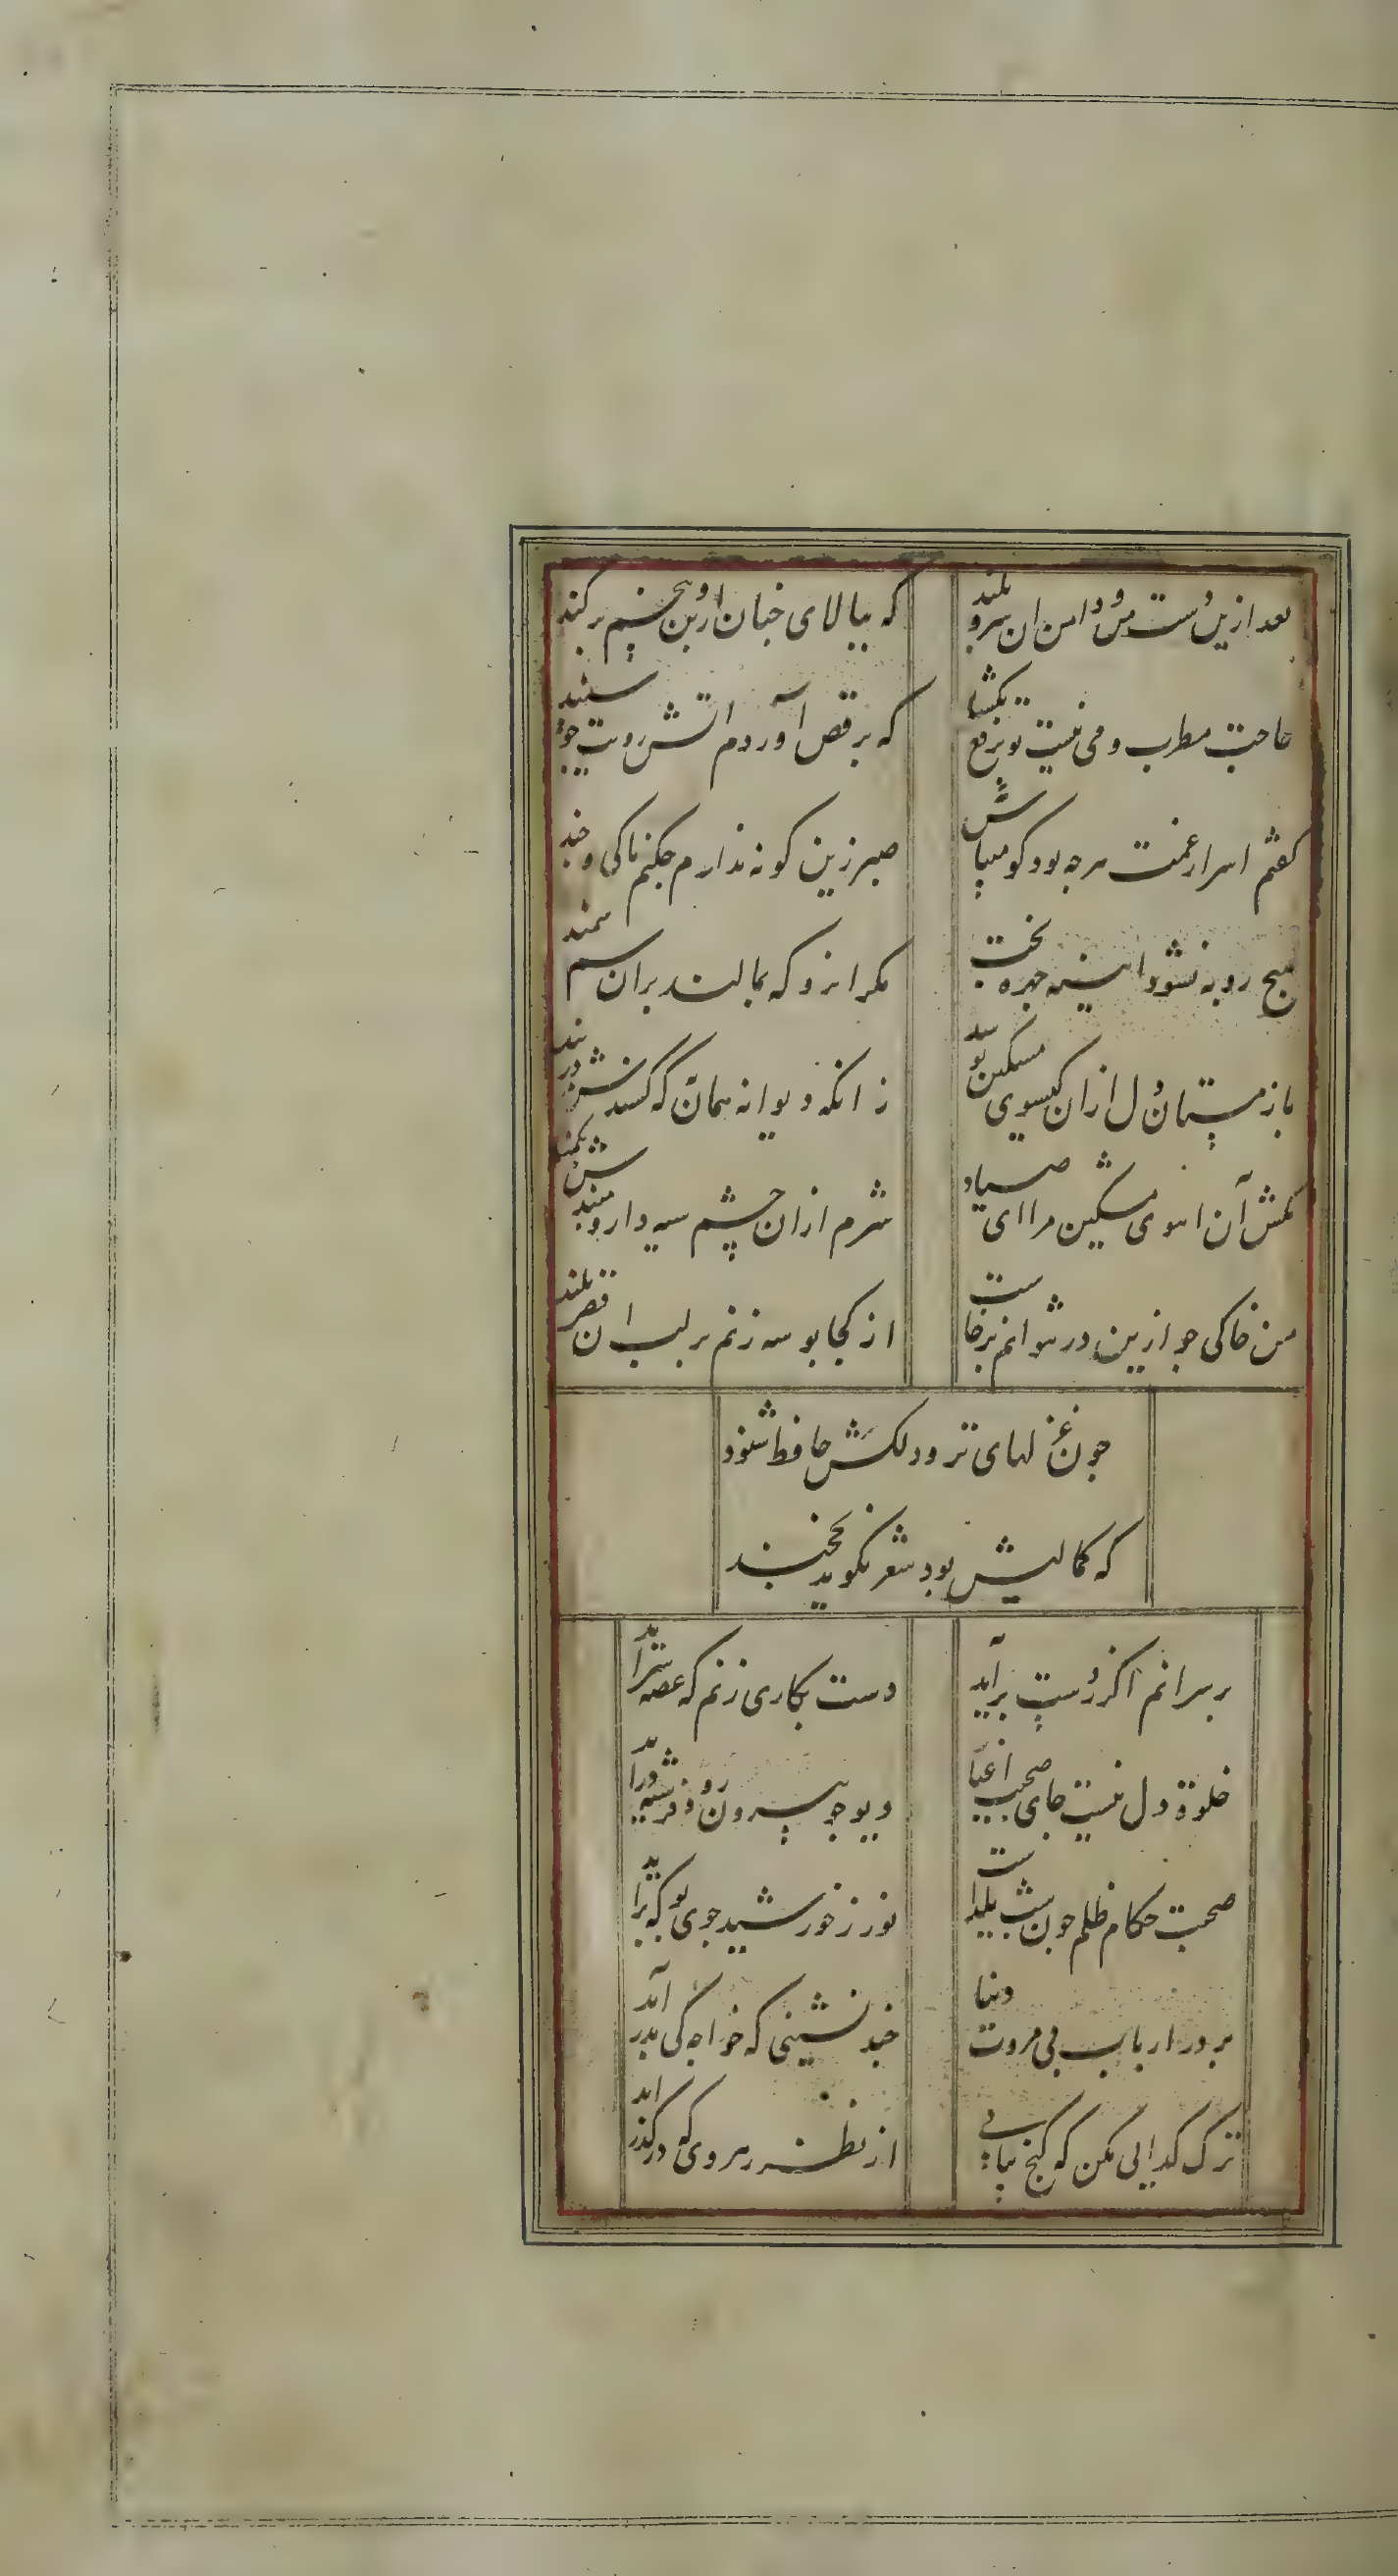 بعد ازین دست من و دامن ان سرو بلند
که ببالای خبان از بن و بیخم برکند
حاجت مطرب و می نیست تو برقع بکشا
که برقص آوردم اتش رویت جو سپند
کفتم اسرار غمت هرجه بود کو میباش
صبر زین کونه ندارم جکنم تا کی و جند
هیج رو به نشود اینه جهره بخت
مکر انرو که بمالند بران سم سمند
باز مپستان دل ازان کیسوی مسکین تو سد
زانکه دیوانه همان که کسندش در بند
مکش آن اهوی مشکین مرا ای صیاد
شرم ازان چشم سیه دار و مبندش بکمند
من خاکی جو ازین در نتوانم برخاست
از کجا بوسه زنم بر لب ان قصر بلند
جون غزلهای تر و دلکش حافظ شنود
که کمالیش بود شعر نکوید بخجند
بر سر انم اکر ز دست برآید
دست بکاری زنم که غصه سرآید
خلوة دل نیست جای صحبت اغیا
دیو جو بیرون رود فرشته درآید
صحبت حکام ظلم جون شب یلداست
نور ز خورشید جوی بو که برآید
بر در ارباب بی مروت دنیا
جند نشینی که خواجه کی بدر آید
ترک کدایی مکن که کنج بیابی
از نظر رهروی که درکذر اید